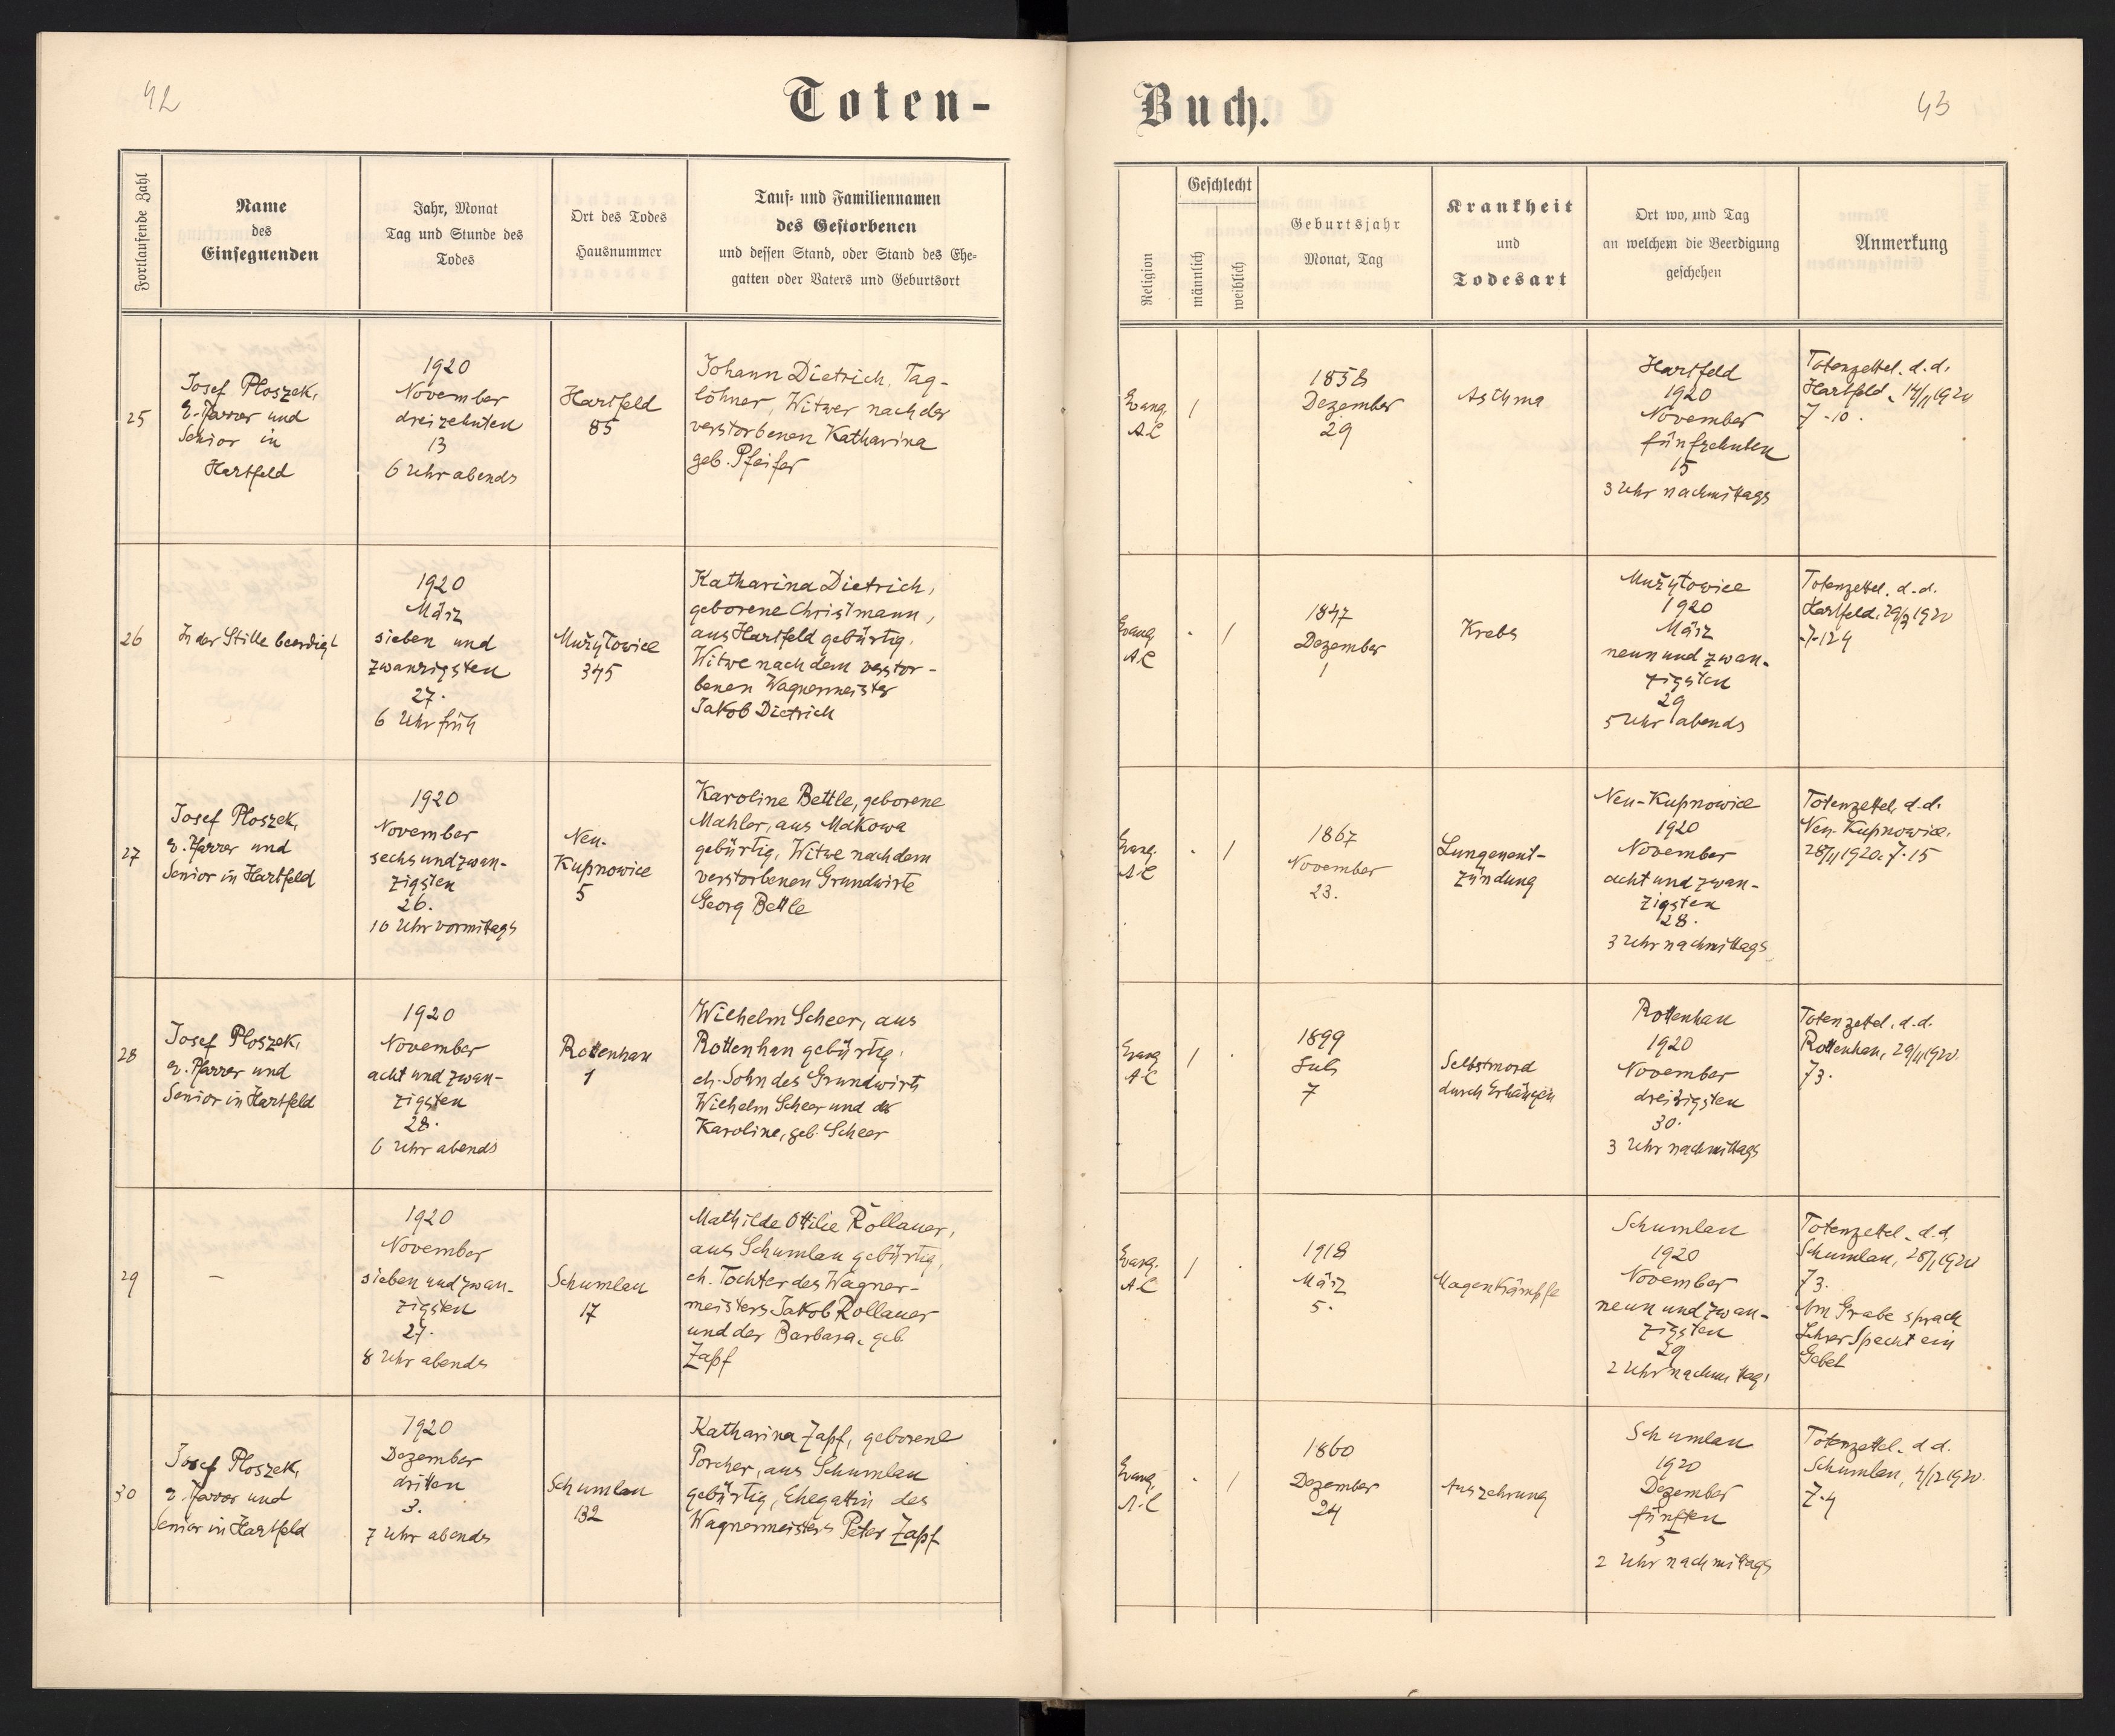 42
Toten-
Fortlaufende Zahl
Name
des
Einsegnenden
Jahr, Monat
Tag und Stunde des
Todes
Ort des Todes
Hausnummer
Tauf- und Familiennamen
des Gestorbenen
und dessen Stand, oder Stand des Ehe-
gatten oder Vaters und Geburtsort
25
Josef Ploszek,
e. Pfarrer und
Senior in
Hartfeld
1920
November
dreizehnten
13
6 Uhr abends
Hartfeld
85
Johann Dietrich, Tag-
löhner, Witwer nach der
verstorbenen Katharina
geb. Pfeifer
26
In der Stille beerdigt
1920
März
sieben und
zwanzigsten
27.
6 Uhr früh
Mużyłowice
345
Katharina Dietrich,
geborene Christmann,
aus Hartfeld gebürtig,
Witwe nach dem verstor-
benen Wagnermeister
Jakob Dietrich
27
Josef Ploszek,
e. Pfarrer und
Senior in Hartfeld
1920
November
sechs und zwan-
zigsten
26.
10 Uhr vormittags
Neu-
Kupnowice
5
Karoline Bettle, geborene
Mahler, aus Makowa
gebürtig, Witwe nach dem
verstorbenen Grundwirte
Georg Bettle
28
Josef Ploszek,
e. Pfarrer und
Senior in Hartfeld
1920
November
acht und zwan-
zigsten
28.
6 Uhr abends
Rottenhan
1
Wilhelm Scheer, aus
Rottenhan gebürtig,
eh. Sohn des Grundwirts
Wilhelm Scheer und der
Karoline, geb. Scheer
29
—
1920
November
sieben und zwan-
zigsten
27.
8 Uhr abends
Schumlau
17
Mathilde Ottilie Rollauer,
aus Schumlau gebürtig,
eh. Tochter des Wagner-
meisters Jakob Rollauer
und der Barbara, geb.
Zapf
30
Josef Ploszek,
e. Pfarrer und
Senior in Hartfeld
1920
Dezember
dritten
3.
7 Uhr abends
Schumlau
132
Katharina Zapf, geborene
Porcher, aus Schumlau
gebürtig, Ehegattin des
Wagnermeisters Peter Zapf
Buch.
43
Religion
Geschlecht
männlich
weiblich
Geburtsjahr
Monat, Tag
Krankheit
und
Todesart
Ort wo, und Tag
an welchem die Beerdigung
geschehen
Anmerkung
Evang.
A.C
1
1858
Dezember
29
Asthma
Hartfeld
1920
November
fünfzehnten
15
3 Uhr nachmittags
Totenzettel. d.d.
Hartfeld, 14/11 1920
7-10.
Evang.
A.C
-
1
1847
Dezember
1
Krebs
Mużyłowice
1920
März
neun und zwan-
zigsten
29
5 Uhr abends
Totenzettel. d.d.
Hartfeld, 29/3 1920
7-124
Evang.
A.C
-
1
1867
November
23.
Lungenent-
zündung
Neu-Kupnowice
1920
November
acht und zwan-
zigsten
28.
3 Uhr nachmittags
Totenzettel, d.d.
Neu-Kupnowice,
28/11 1920. 7-15
Evang.
A.C
1
.
1899
Juli
7
Selbstmord
durch Erhängen
Rottenhan
1920
November
dreißigsten
30.
3 Uhr nachmittags
Totenzettel. d.d.
Rottenhan, 29/11 1920.
73.
Evang.
A.C
1
.
1918
März
5.
Magenkrämpfe
Schumlau
1920
November
neun und zwan-
zigsten
29
2 Uhr nachmittag
Totenzettel. d.d.
Schumlau, 28/11 1920
73.
Am Grabe sprach
Lehrer Specht ein
Gebet
Evang.
A.C
-
1
1860
Dezember
24
Auszehrung
Schumlau
1920
Dezember
fünften
5
2 Uhr nachmittags
Totenzettel. d.d.
Schumlau, 4/12 1920.
7-4